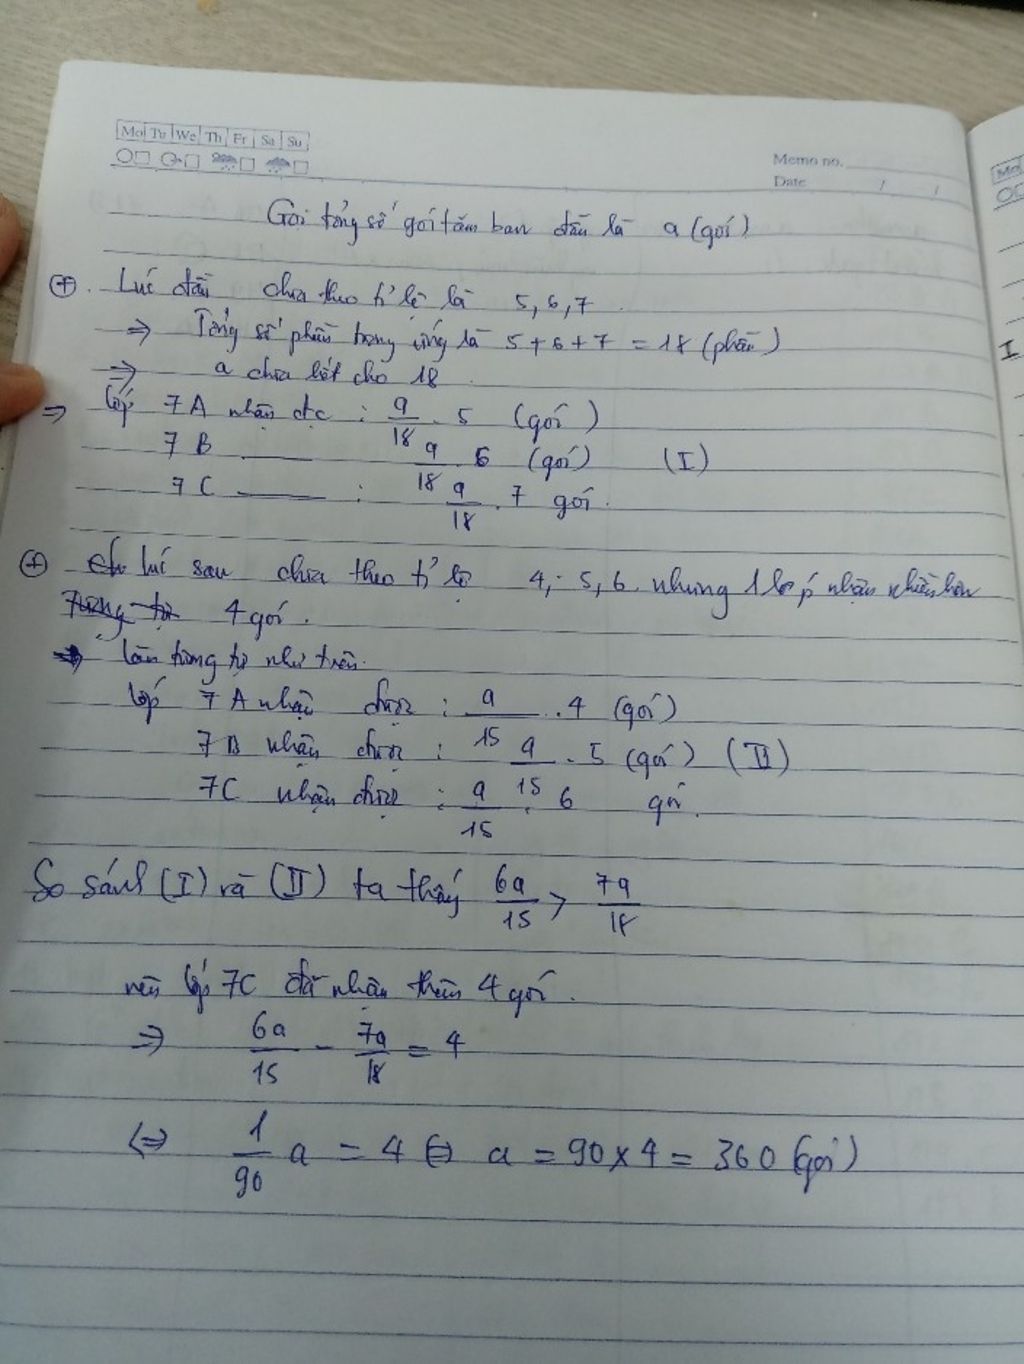 Mo Tu We Th Fr Sa Su
Memo no.
Date / /
Gọi tổng số gói tăm ban đầu là a (gói)
+ Lúc đầu chia theo tỉ lệ là 5, 6, 7
⇒ Tổng số phần tương ứng là 5 + 6 + 7 = 18 (phần)
⇒ a chia hết cho 18
⇒ lớp 7A nhận đc : a/18 . 5 (gói)
7B a/18 . 6 (gói) (I)
7C : a/18 . 7 gói.
+ lúc sau chia theo tỉ lệ 4, 5, 6 nhưng 1 lớp nhận nhiều hơn
Tương tự 4 gói.
làm tương tự như trên.
lớp 7A nhận được : a/15 . 4 (gói)
7B nhận được : a/15 . 5 (gói) (II)
7C nhận được : a/15 . 6 gói.
So sánh (I) và (II) ta thấy 6a/15 > 7a/18
nên lớp 7C đã nhận thêm 4 gói.
⇒ 6a/15 - 7a/18 = 4
⇔ 1/90 a = 4 ⇔ a = 90 x 4 = 360 (gói)
Mo
I